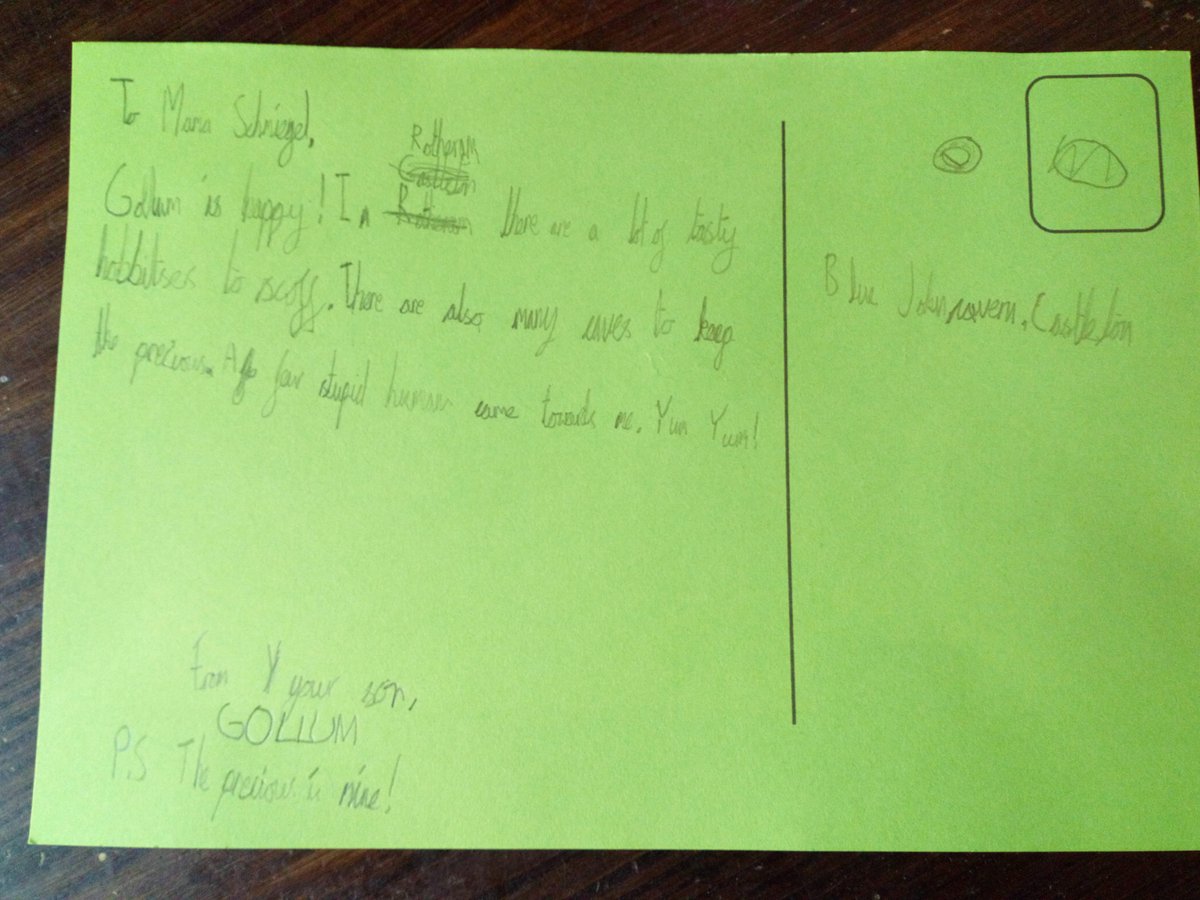 To Mama Schmiegel,
Rotheram
Castleton
Gollum is happy! In Rotheram there are a lot of tasty
hobbitses to scoff. There are also many caves to keep
the precious. A few stupid humans came towards me. Yum Yum!
From Y your son,
GOLLUM
P.S The precious is mine!
Blue John cavern, Castleton